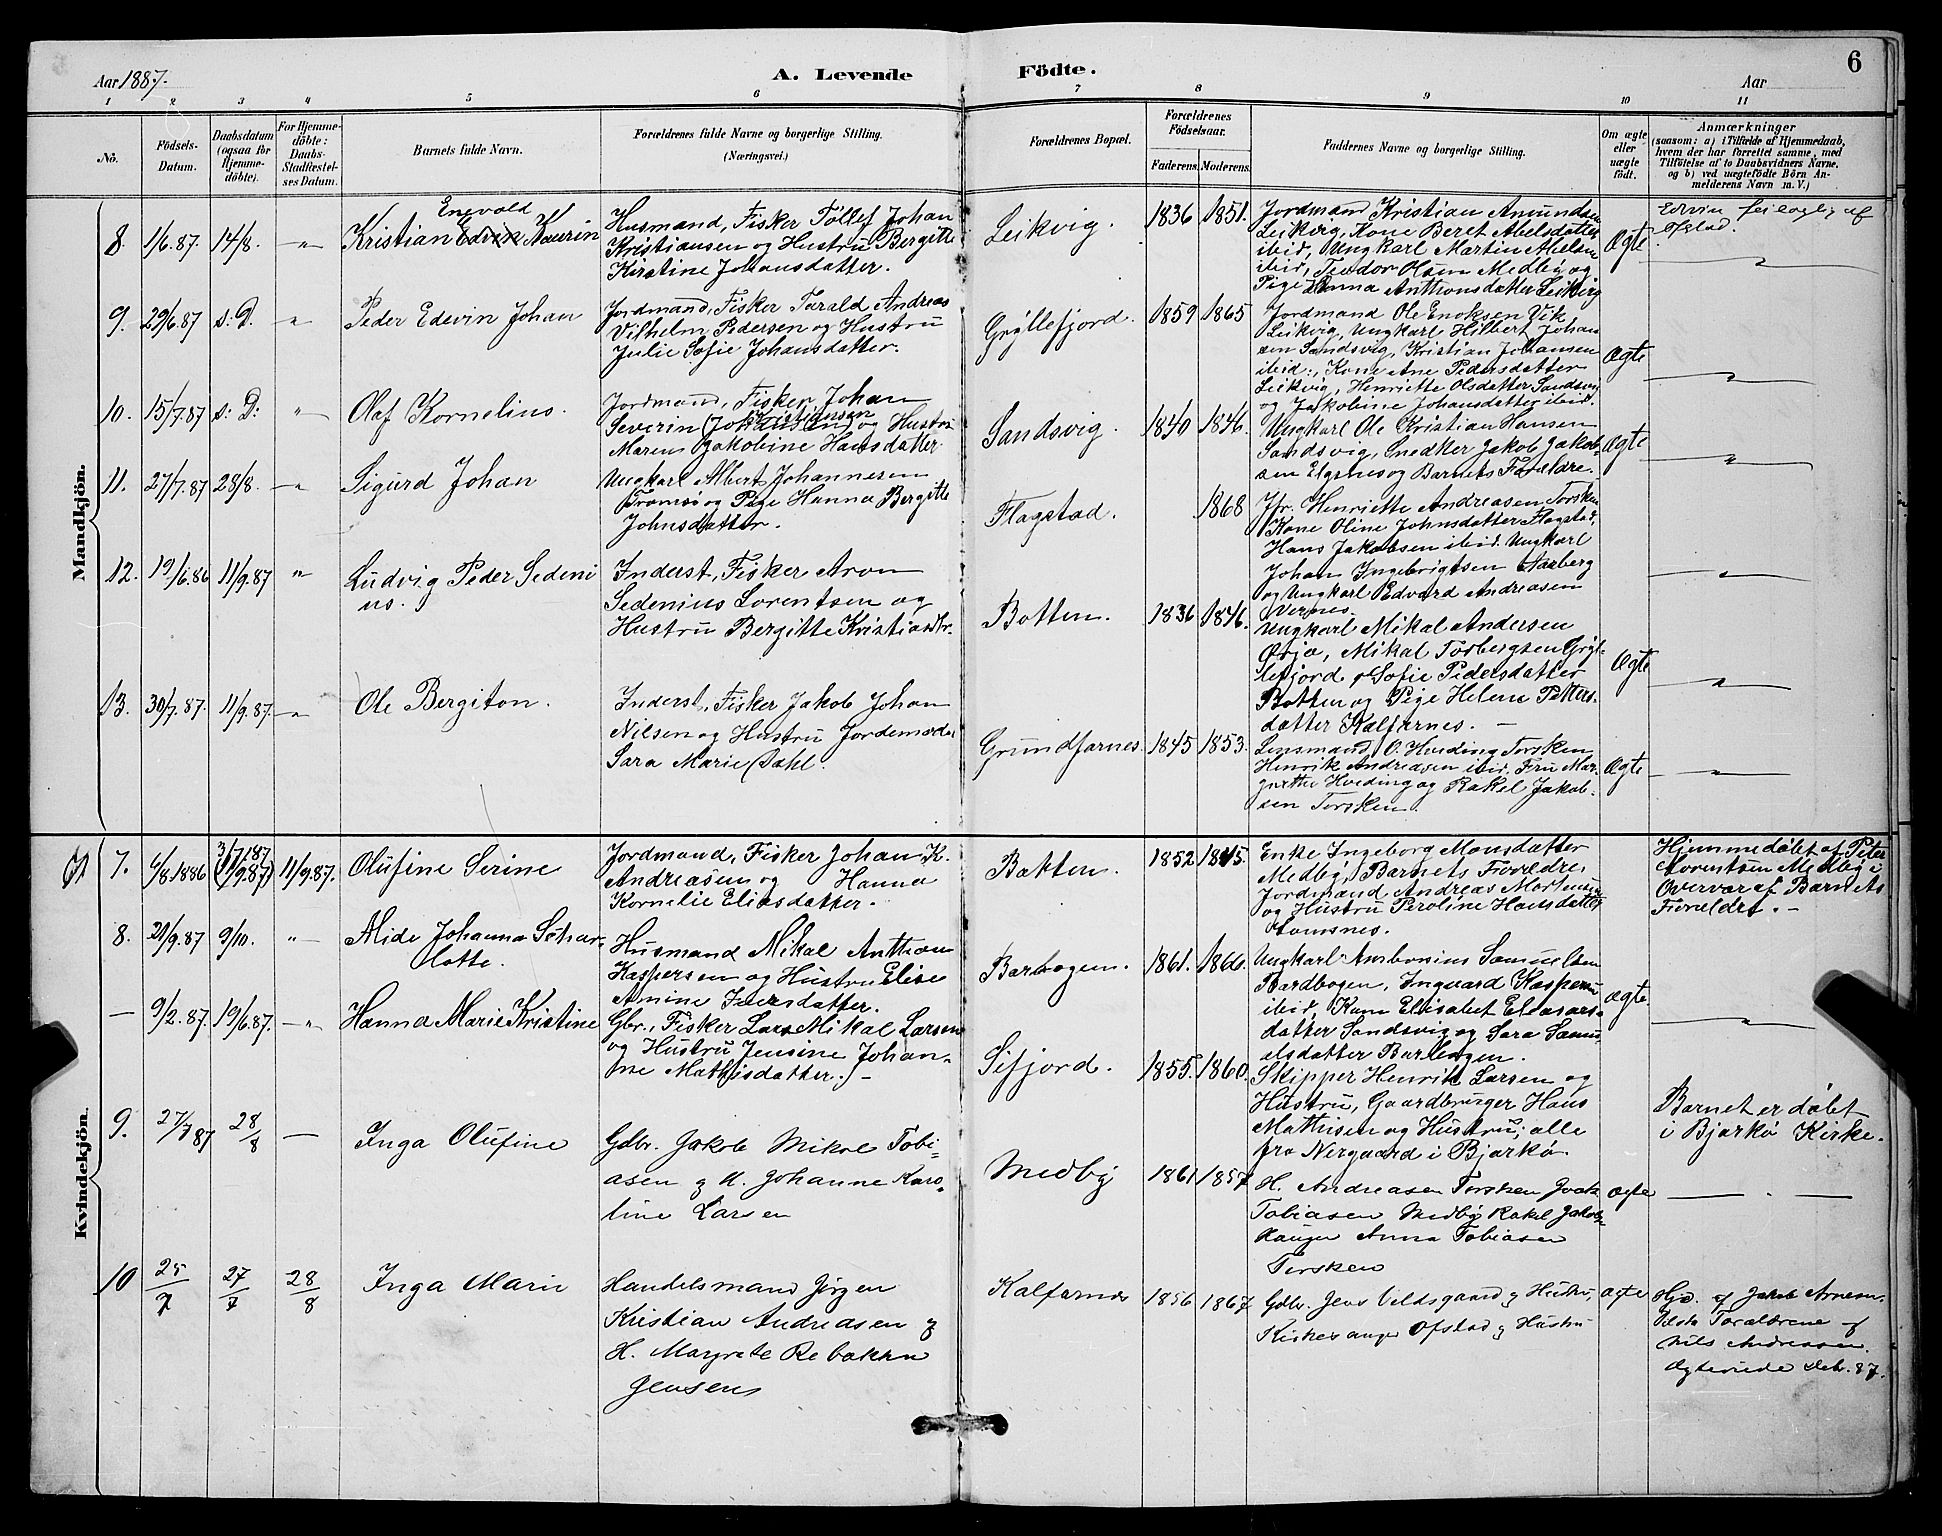 Aar 1887.
A. Levende Födte.
Aar
6
1 2 3 4 5 6 7 8 9 10 11
No.
Födsels-Datum.
Daabsdatum (ogsaa for Hjemme-döbte).
For Hjemme-döbte: Daabs-Stadfæstel-ses Datum.
Barnets fulde Navn.
Forældrenes fulde Navne og borgerlige Stilling.
(Næringsvei.)
Forældrenes Bopæl.
Forældrenes Födselsaar.
Faderens. Moderens.
Faddernes Navne og borgerlige Stilling.
Om ægte eller uægte födt.
Anmærkninger
(saasom: a) i Tilfælde af Hjemmedaab, hvem der har forrettet samme, med Tilföielse af to Daabsvidners Navne, og b) ved uægtefödte Börn An-melderens Navn m. V.)
Mandkjön.
8. 1/6.87. 14/8. -"-
Enevold
Kristian Edvin Kaurin
Husmand, Fisker Tollef Johan
Kristiansen og Hustru Bergitte
Kirstine Johansdatter.
Leikvig. 1836 1851.
Jordmand Kristian Amundsen
Leikvig, Kone Beret Abelsdatter
ibid, Ungkarl Martin Abelsen
ibid, Teodor Olsen Medby og
Pige Anna Anthonsdatter Leikvig
Ægte
Edvin feilagtig af
Ofstad.
9. 29/6.87 s: D. "
Peder Edevin Johan
Jordmand, Fisker Tarald Andreas
Vilhelm Pedersen og Hustru
Julie Sofie Johansdatter.
Gryllefjord. 1859 1865
Jordmand Ole Enoksen Vik
Leikvig, Ungkarl Hilbert Johan
sen Sandsvig, Kristian Johansen
ibid:, Kone Ane Pedersdatter
Leikvig, Henriette Olsdatter Sandsvig
og Jakobine Johansdatter ibid.
Ægte
10. 15/7.87 s: D: "
Olaf Kornelius.
Jordmand, Fisker Johan
Kristiansen
Severin (Johansen) og Hustru
Maren Jakobine Hansdatter
Sandsvig. 1840 1846.
Ungkarl Ole Kristian Hansen
Sandsvig, Snedker Jakob Jakob-
sen Elgsnes og Barnets Forældre.
Ægte
11. 27/7.87 28/8. -"-
Sigurd Johan
Ungkarl Albert Johannesen
Tromsö og Pige Hanna Bergitte
Johnsdatter.
Flagstad. 1868
Jfr. Henriette Andreasen Torsken
Kone Oline Johnsdatter Flagstad,
Hans Jakobsen ibid. Ungkarl
Johan Ingebrigtsen Aarberg
og Ungkarl Edvard Andreasen
Vernes.
12. 19/6.86 11/9.87 "
Ludvig Peder Sedeni
us.
Inderst, Fisker Aron
Sedenius Lorentsen og
Hustru Bergitte Kristiansdtr.
Botten. 1836 1846.
Ungkarl Mikal Andersen
Mikal Torbergsen Gryl-
lefjord, Sofie Pedersdatter
Botten og Pige Helene Petters-
datter Kalfarnes. —
Ægte
13. 30/7.87. 11/9.87. -"-
Ole Bergiton.
Inderst, Fisker Jakob Johan
Nilsen og Hustru Jordemoder
Sara Marie Dahl.
Grundfarnes. 1845 1853.
Lensmand O. Hveding Torsken
Henrik Andreasen ibid. Fru Mar-
grethe Hveding og Rakel Jakob-
sen Torsken.
Ægte
Kvindekjön.
7. 6/8.1886 3/7.87 (11/9.87) 11/9.87.
Olufine Serine
Jordmand, Fisker Johan K.
Andreasen og Hanna
Kornelie Eliasdatter.
Bakten. 1852 1845.
Enke Ingeborg Monsdatter
Medby, Barnets Forældre,
Jordmand Andreas Mortensen
og Hustru Peroline Hansdatter
Lomsnes.
Hjemmedöbt af Peter
Lorentsen Medby i
Overvær af Barnets
Forældre. —
8. 21/9.87 9/10. "
Alide Johanna Schar-
lotte.
Husmand Mikal Anthon
Kaspersen og Hustru Elise
Amine Iversdatter.
Barbogen. 1861. 1866.
Ungkarl Ambrosius Samuelsen
Bardbogen, Ingvard Kaspersen
ibid, Kone Elisabet Eleasars-
datter Sandsvig og Sara Samu-
elsdatter Barbogen.
ægte
— 9/2.87. 19/6.87. -"-
Hanna Marie Kristine
Gbr., Fisker Lars Mikal Larsen
og Hustru Jensine Johan-
ne Mathisdatter. —
Sifjord. 1855. 1860.
Skipper Henrik Larsen og
Hustru, Gaardbruger Hans
Mathisen og Hustru; alle
fra Nergaard i Bjarkö.
Barnet er döbt
i Bjarkö Kirke.
9. 27/7 87 28/8 —
Inga Olufine
Gdbr. Jakob Mikal Tobi-
asen og H. Johanne Karo-
line Larsen
Medby 1861 1857
H. Andreasen Torsken
Tobiasen Medby Rakel Jakobs.
Anna Tobiasen
Torsken
ægte
10 25/7 27/7 28/8
Inga Marie
Handelsmand Jörgen
Kristian Andreasen og
H. Margrete Rebakka
Jensen
Kalfarnes 1856 1867
Gdbr. Jens Veldsgaard og Hustru,
Kirkesanger Ofstad og Hustru
ægte
Hjd. af Jakob Arnesen.
Forældrene og
Nils Andreasen.
87.